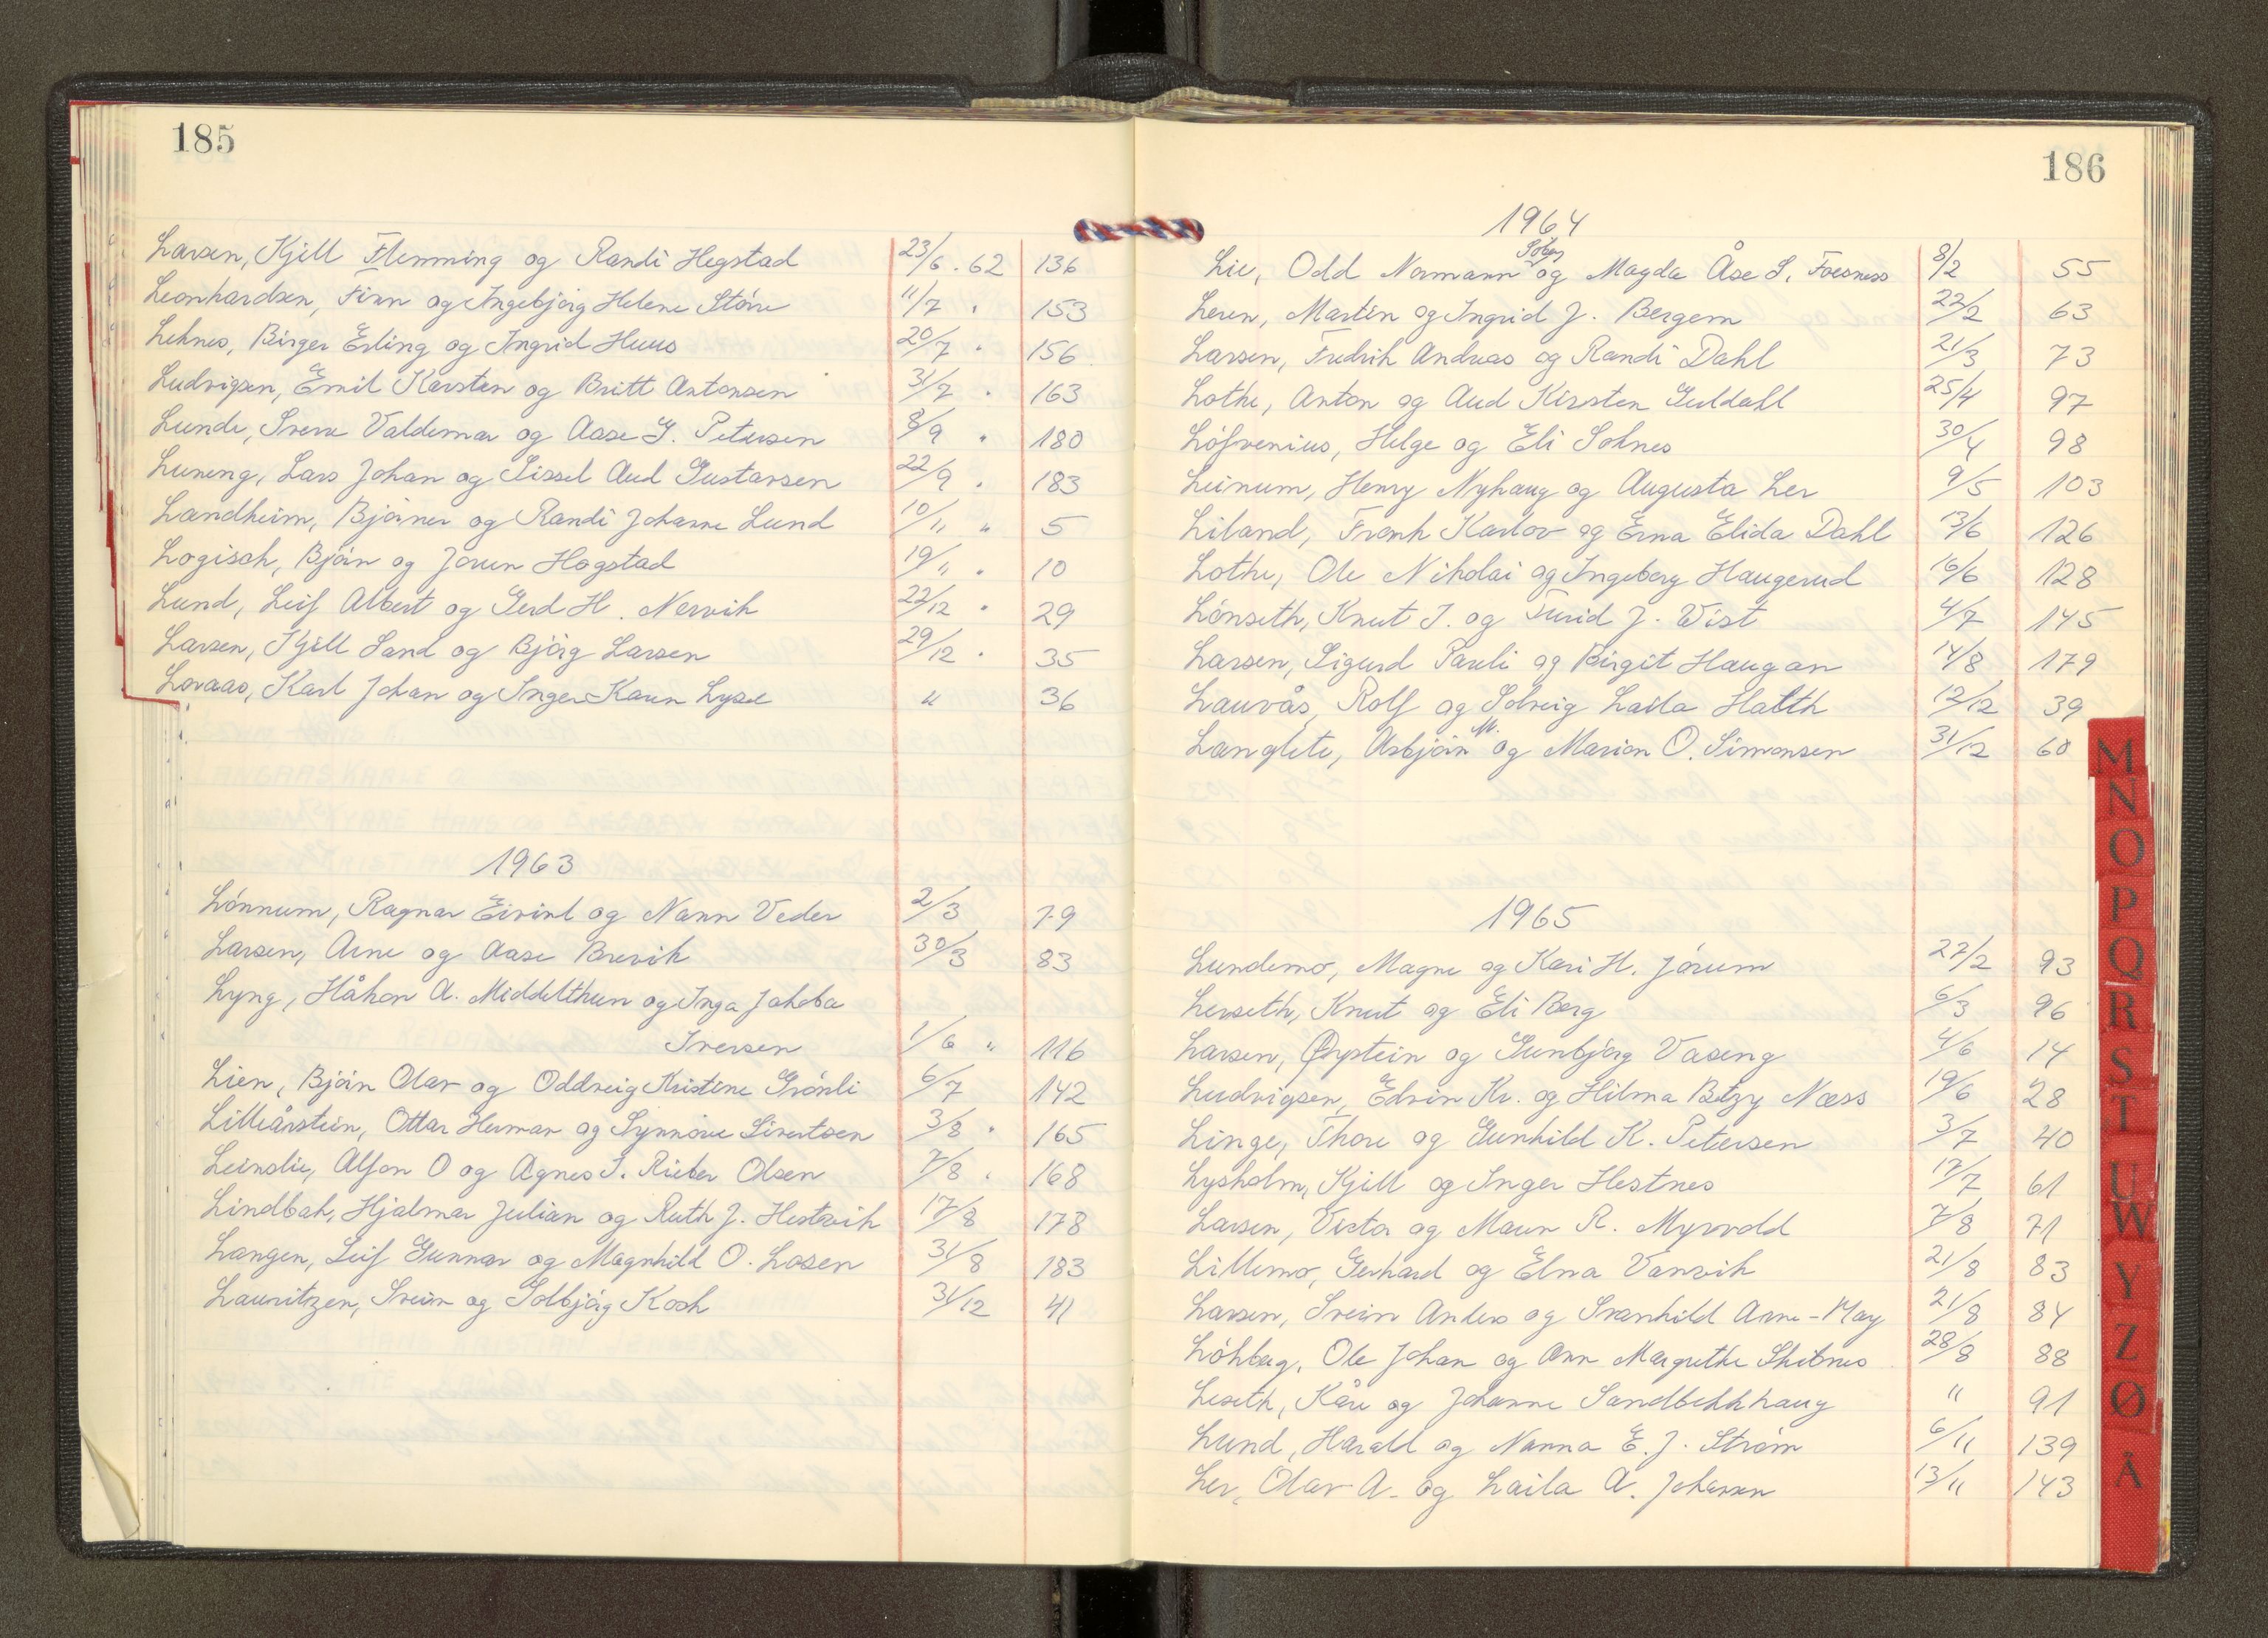 185
Larsen, Kjell Flemming og Randi Hegstad 23/6 . 62 136
Leonhardsen, Finn og Ingebjørg Helene Støre 11/7 " 153
Lehnes, Birger Erling og Ingrid Huus 20/7 " 156
Ludvigsen, Emil Karsten og Britt Antonsen 31/7 " 163
Lunde, Sverre Valdemar og Aase G. Petersen 8/9 " 180
Luneng, Lars Johan og Sissel Aud Gustavsen 22/9 " 183
Landheim, Bjørner og Randi Johanne Lund 10/11 " 5
Logisch, Bjørn og Jorun Hogstad 19/11 " 10
Lund, Leif Albert og Gerd H. Nervik 22/12 " 29
Larsen, Kjell Sand og Bjørg Larsen 29/12 " 35
Lovaas, Karl Johan og Inger-Karin Lysø " 36
1963
Lønnum, Ragnar Eivind og Nann Veder 2/3 79
Larsen, Arne og Aase Brevik 30/3 83
Lyng, Håkon A. Middelthun og Inga Jakoba
Iversen 1/6 " 116
Lien, Bjørn Olav og Oddveig Kristine Grønli 6/7 142
Lilleårstein, Ottar Herman og Synnøve Sivertsen 3/8 " 165
Leinslie, Alfon O og Agnes S. Rieber Olsen 7/8 " 168
Lindbak, Hjalmar Julian og Ruth J. Hestvik 17/8 178
Langen, Leif Gunnar og Magnhild O. Losen 31/8 183
Lauritzen, Svein og Solbjørg Kosh 31/12 41
186
1964
Lie, Odd Normann og Magda Åse S. Foesness 8/2 55
Leren, Martin og Ingrid J. Bergem 22/2 63
Larsen, Fredrik Andreas og Randi Dahl 21/3 73
Lothe, Anton og Aud Kirsten Guldahl 25/4 97
Löfvenius, Helge og Eli Soknes 30/4 98
Leinum, Henry Nyhaug og Augusta Ler 9/5 103
Liland, Frank Karlov og Erna Elida Dahl 13/6 126
Lothe, Ole Nikolai og Ingeborg Haugerud 16/6 128
Lønseth, Knut I. og Turid J. Wist 4/7 145
Larsen, Sigurd Pauli og Birgit Haugan 14/8 179
Lauvås, Rolf og Solveig Laila Halth 12/12 39
Langlete, Asbjørn M. og Marion O. Simonsen 31/12 60
1965
Lundemo, Magne og Kari H. Jørum 27/2 93
Lerseth, Knut og Eli Berg 6/3 96
Larsen, Øystein og Gunbjørg Vaseng 4/6 14
Ludvigsen, Edvin Kr. og Hilma Betzy Næss 19/6 28
Linge, Thore og Gunhild K. Petersen 3/7 40
Lysholm, Kjell og Inger Hestnes 17/7 61
Larsen, Victor og Maun R. Myrvold 7/8 71
Lillemo, Gerhard og Elna Vanvik 21/8 83
Larsen, Svein Anders og Svanhild Anne-May 21/8 84
Løkberg, Ole Johan og Ann Margrethe Skibnes 28/8 88
Leseth, Kåre og Johanne Sandbekkhaug " 91
Lund, Harald og Nanna E. J. Strøm 6/11 139
Ler, Olav A. og Laila A. Johansen 13/11 143
M
N
O
P
Q
R
S
T
U
W
Y
Z
Ø
Å